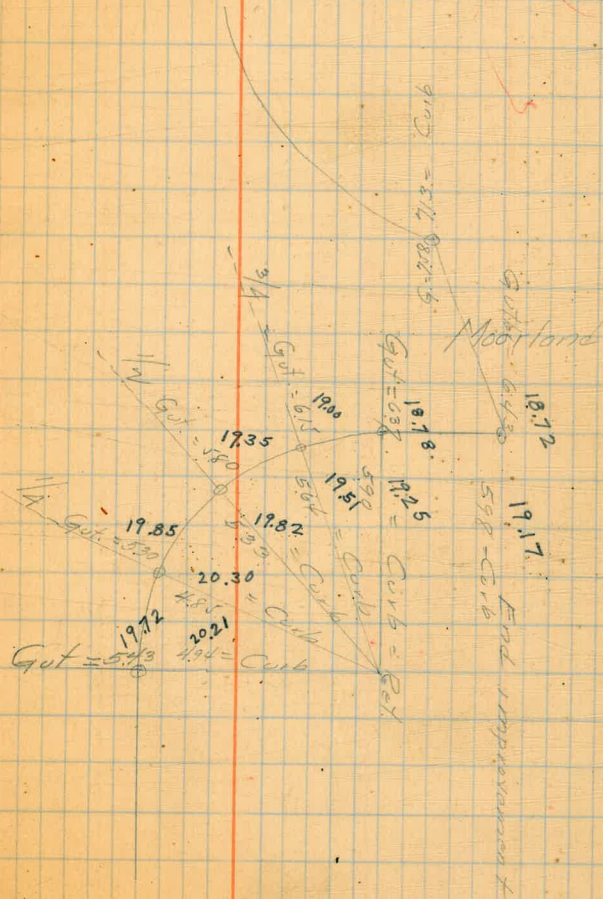 Moorland
7.13 = Curb
G = 7.80
Gutter = 6.43
18.72
19.17
5.98 - Curb
End improvement
Gut = 6.37
18.78
19.25
5.90 = Curb = Ret.
3/4
Gut = 6.15
19.00
19.51
5.64 = Curb
1/2
Gut = 5.80
19.35
19.82
5.33 = Curb
1/4
Gut = 5.30
19.85
20.30
4.85 = Curb
19.72
20.21
Gut = 5.43
4.94 = Curb